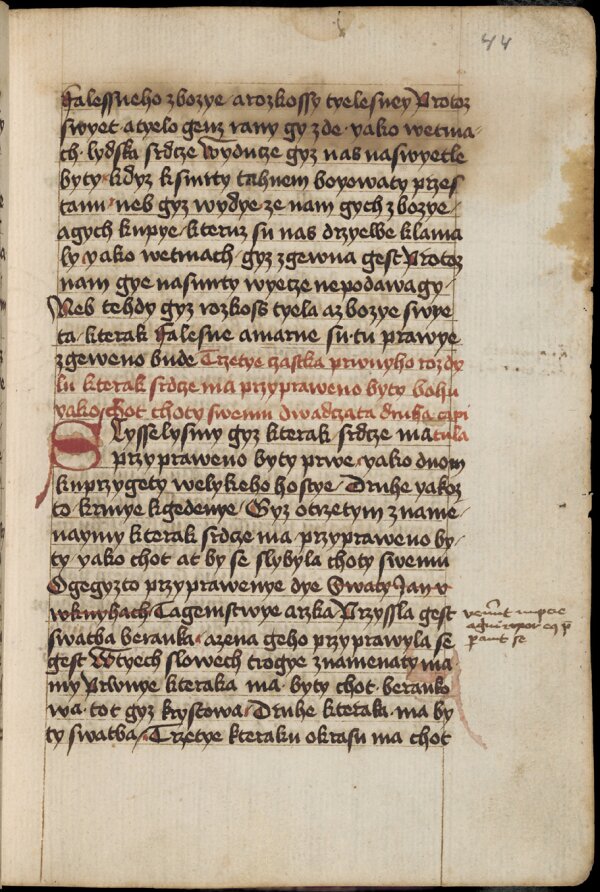 44
ffalessneho zbozye a rozkossy tyelesney Protoz
swyet · a tyelo genz rany gy zde · yako wetma
ch · lydska srdcze Wyducze gyz nas naswyetle
byty · kdyz k smrty tahnem boyowaty przes
tanu · neb gyz wydye ze nam gych zbozye
a gych kupye · kteruz su nas drzyewe klama
ly yako wetmach · gyz zgewna gest Protoz
nam gye nasmrty wyecze nepodawagy
Neb tehdy gyz rozkoss tyela az bozye swye
ta · kterak ffalesne a marne su · tu prawye
zgeweno bude Trzetye czastka prwnyho rozdy
lu kterak srdcze ma przypraweno byty bohu
yako chot choty swemu dwadczata druha capi
tula
Slysselysmy gyz kterak srdcze ma
przypraweno byty prwe · yako duom
ku przygety welykeho hostye Druhe yakoz
to krmye k gedenye Gyz o trzetym zname
naymy kterak srdcze ma przypraweno by
ty yako chot at by se slybyla choty swemu
O gegyzto przyprawenye dye Swaty Jan v
w knyhach Tagemstwye a rzka Przyssla gest
swatba beranka · a zena geho przyprawyla se
gest W tyech slowech trogye znamenaty ma
my Prwnye kteraka ma byty chot · beranko
wa · tot gyz krystowa Druhe kteraka · ma by
ty swatba Trzetye kteraku okrasu ma chot